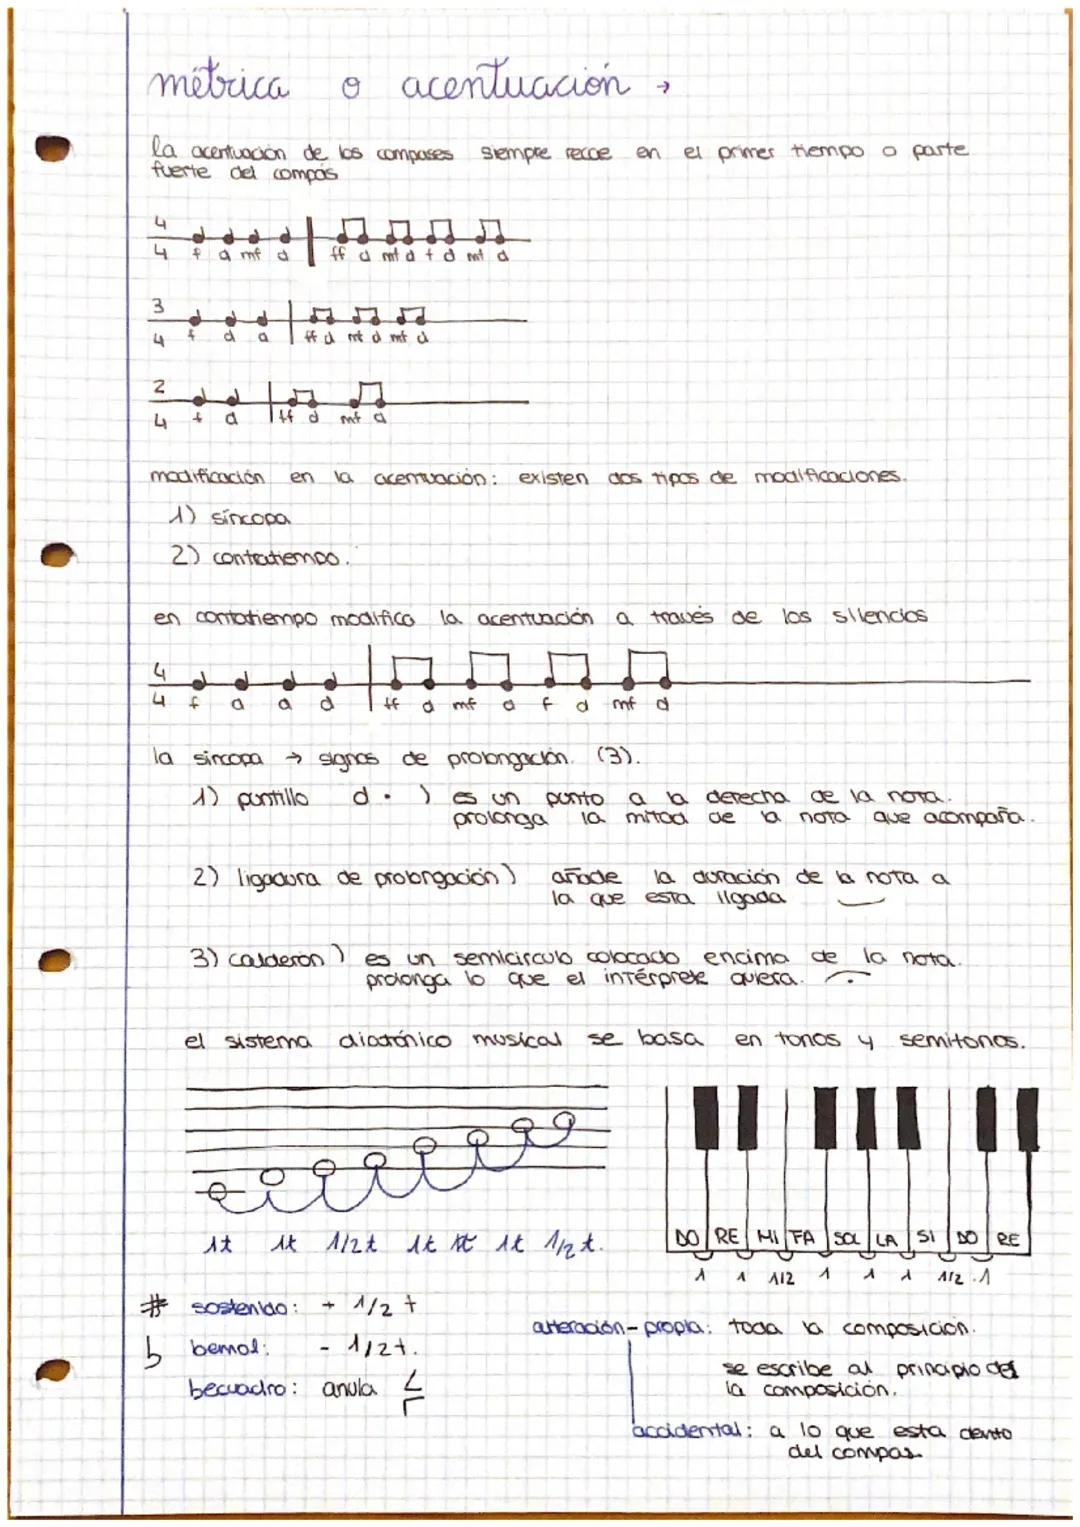 métrica o acentuación →
la acentuación de los compases siempre recae en el primer tiempo o parte
fuerte del compás
4
4 f d mf d ff d mf d f d mf d
3
4 f d d ff d mf d mf d
2
4 f d ff d mf d
modificación en la acentuación: existen dos tipos de modificaciones.
1) síncopa
2) contratiempo.
en contatiempo modifica la acentuación a través de los silencios
4
4 f d d d ff d mf d f d mf d
la sincopa → signos de prolongación. (3).
1) puntillo d. ) es un punto a la derecha de la nota.
prolonga la mitad de la nota que acompaña.
2) ligadura de prolongación) añade la duración de la nota a
la que esta ligada
3) calderón) es un semicirculo colocado encima de la nota.
prolonga lo que el intérprete quiera.
el sistema diatónico musical se basa en tonos y semitonos.
1t 1t 1/2t 1t 1t 1t 1/2t.
DO RE MI FA SOL LA SI DO RE
1 1 1/2 1 1 1 1/2 . 1
# sostenido: + 1/2 t
b bemol: - 1/2t.
becuadro: anula
alteración - propia: toda la composición.
se escribe al principio de
la composición.
accidental: a lo que esta dento
del compas